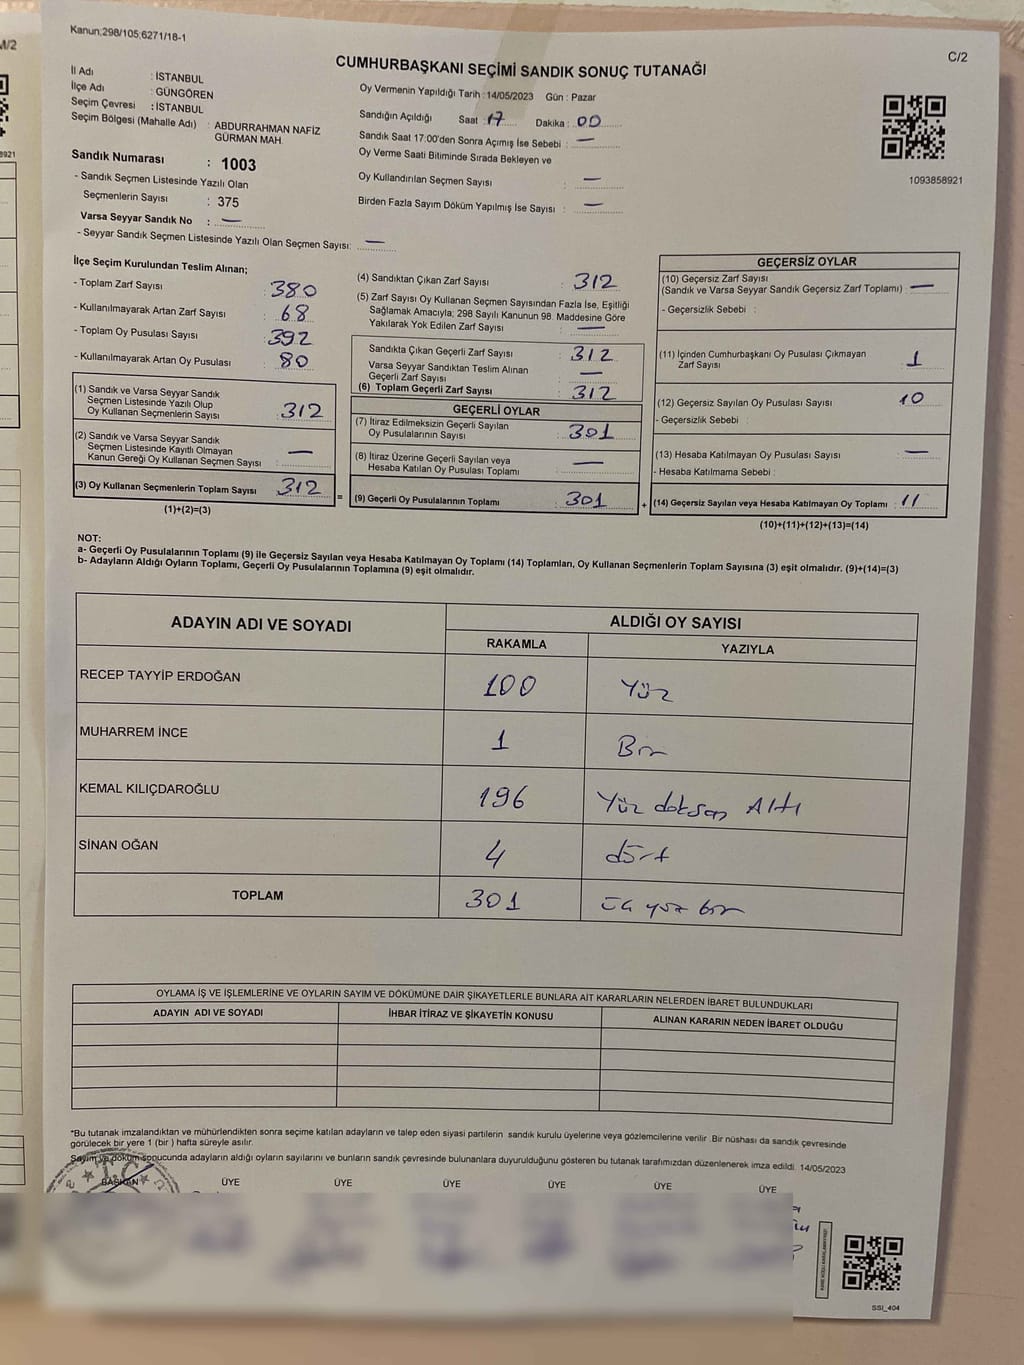 M/2
8921
Kanun;298/105;6271/18-1
C/2
CUMHURBAŞKANI SEÇİMİ SANDIK SONUÇ TUTANAĞI
İl Adı : İSTANBUL
İlçe Adı : GÜNGÖREN
Seçim Çevresi : İSTANBUL
Seçim Bölgesi (Mahalle Adı) : ABDURRAHMAN NAFİZ
GÜRMAN MAH.
Sandık Numarası : 1003
- Sandık Seçmen Listesinde Yazılı Olan
Seçmenlerin Sayısı : 375
Varsa Seyyar Sandık No : —
- Seyyar Sandık Seçmen Listesinde Yazılı Olan Seçmen Sayısı: —
Oy Vermenin Yapıldığı Tarih : 14/05/2023 Gün : Pazar
Sandığın Açıldığı Saat : 17 Dakika : 00
Sandık Saat 17:00'den Sonra Açımış İse Sebebi : —
Oy Verme Saati Bitiminde Sırada Bekleyen ve
Oy Kullandırılan Seçmen Sayısı : —
Birden Fazla Sayım Döküm Yapılmış İse Sayısı : —
1093858921
İlçe Seçim Kurulundan Teslim Alınan;
- Toplam Zarf Sayısı : 380
- Kullanılmayarak Artan Zarf Sayısı : 68
- Toplam Oy Pusulası Sayısı : 392
- Kullanılmayarak Artan Oy Pusulası : 80
(1) Sandık ve Varsa Seyyar Sandık
Seçmen Listesinde Yazılı Olup
Oy Kullanan Seçmenlerin Sayısı : 312
(2) Sandık ve Varsa Seyyar Sandık
Seçmen Listesinde Kayıtlı Olmayan
Kanun Gereği Oy Kullanan Seçmen Sayısı : —
(3) Oy Kullanan Seçmenlerin Toplam Sayısı : 312
(1)+(2)=(3)
=
(4) Sandıktan Çıkan Zarf Sayısı : 312
(5) Zarf Sayısı Oy Kullanan Seçmen Sayısından Fazla İse, Eşitliği
Sağlamak Amacıyla; 298 Sayılı Kanunun 98. Maddesine Göre
Yakılarak Yok Edilen Zarf Sayısı : —
Sandıkta Çıkan Geçerli Zarf Sayısı : 312
Varsa Seyyar Sandıktan Teslim Alınan
Geçerli Zarf Sayısı : —
(6) Toplam Geçerli Zarf Sayısı : 312
GEÇERLİ OYLAR
(7) İtiraz Edilmeksizin Geçerli Sayılan
Oy Pusulalarının Sayısı : 301
(8) İtiraz Üzerine Geçerli Sayılan veya
Hesaba Katılan Oy Pusulası Toplamı : —
(9) Geçerli Oy Pusulalarının Toplamı : 301
+
GEÇERSİZ OYLAR
(10) Geçersiz Zarf Sayısı
(Sandık ve Varsa Seyyar Sandık Geçersiz Zarf Toplamı) : —
- Geçersizlik Sebebi :
(11) İçinden Cumhurbaşkanı Oy Pusulası Çıkmayan
Zarf Sayısı : 1
(12) Geçersiz Sayılan Oy Pusulası Sayısı : 10
- Geçersizlik Sebebi :
(13) Hesaba Katılmayan Oy Pusulası Sayısı : —
- Hesaba Katılmama Sebebi :
(14) Geçersiz Sayılan veya Hesaba Katılmayan Oy Toplamı : 11
(10)+(11)+(12)+(13)=(14)
NOT:
a- Geçerli Oy Pusulalarının Toplamı (9) ile Geçersiz Sayılan veya Hesaba Katılmayan Oy Toplamı (14) Toplamları, Oy Kullanan Seçmenlerin Toplam Sayısına (3) eşit olmalıdır. (9)+(14)=(3)
b- Adayların Aldığı Oyların Toplamı, Geçerli Oy Pusulalarının Toplamına (9) eşit olmalıdır.
ADAYIN ADI VE SOYADI ALDIĞI OY SAYISI
RAKAMLA YAZIYLA
RECEP TAYYİP ERDOĞAN 100 Yüz
MUHARREM İNCE 1 Bir
KEMAL KILIÇDAROĞLU 196 Yüz doksan Altı
SİNAN OĞAN 4 dört
TOPLAM 301 üç yüz bir
OYLAMA İŞ VE İŞLEMLERİNE VE OYLARIN SAYIM VE DÖKÜMÜNE DAİR ŞİKAYETLERLE BUNLARA AİT KARARLARIN NELERDEN İBARET BULUNDUKLARI
ADAYIN ADI VE SOYADI İHBAR İTİRAZ VE ŞİKAYETİN KONUSU ALINAN KARARIN NEDEN İBARET OLDUĞU
*Bu tutanak imzalandıktan ve mühürlendikten sonra seçime katılan adayların ve talep eden siyasi partilerin sandık kurulu üyelerine veya gözlemcilerine verilir .Bir nüshası da sandık çevresinde
görülecek bir yere 1 (bir ) hafta süreyle asılır.
Sayım ve döküm sonucunda adayların aldığı oyların sayılarını ve bunların sandık çevresinde bulunanlara duyurulduğunu gösteren bu tutanak tarafımızdan düzenlenerek imza edildi. 14/05/2023
T.C.
BAŞKAN ÜYE ÜYE ÜYE ÜYE ÜYE ÜYE
SSI_404